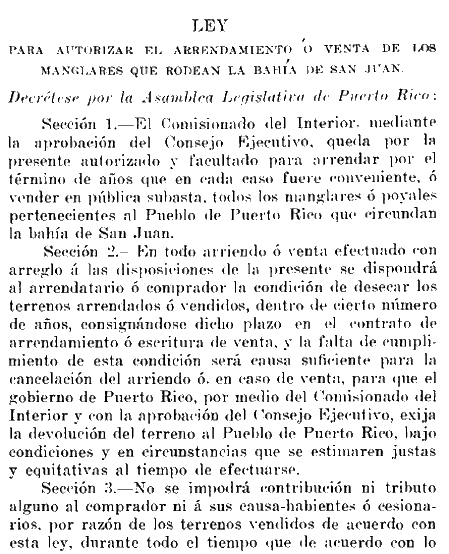 LEY
PARA AUTORIZAR EL ARRENDAMIENTO Ó VENTA DE LOS
MANGLARES QUE RODEAN LA BAHÍA DE SAN JUAN.
Decrétese por la Asamblea Legislativa de Puerto Rico:
Sección 1.—El Comisionado del Interior, mediante
la aprobación del Consejo Ejecutivo, queda por la
presente autorizado y facultado para arrendar por el
término de años que en cada caso fuere conveniente, ó
vender en pública subasta, todos los manglares ó poyales
pertenecientes al Pueblo de Puerto Rico que circundan
la bahía de San Juan.
Sección 2.– En todo arriendo ó venta efectuado con
arreglo á las disposiciones de la presente se dispondrá
al arrendatario ó comprador la condición de desecar los
terrenos arrendados ó vendidos, dentro de cierto número
de años, consignándose dicho plazo en el contrato de
arrendamiento ó escritura de venta, y la falta de cumpli-
miento de esta condición será causa suficiente para la
cancelación del arriendo ó, en caso de venta, para que el
gobierno de Puerto Rico, por medio del Comisionado del
Interior y con la aprobación del Consejo Ejecutivo, exija
la devolución del terreno al Pueblo de Puerto Rico, bajo
condiciones y en circunstancias que se estimaren justas
y equitativas al tiempo de efectuarse.
Sección 3.—No se impodrá contribución ni tributo
alguno al comprador ni á sus causa-habientes ó cesiona-
rios, por razón de los terrenos vendidos de acuerdo con
esta ley, durante todo el tiempo que de acuerdo con lo